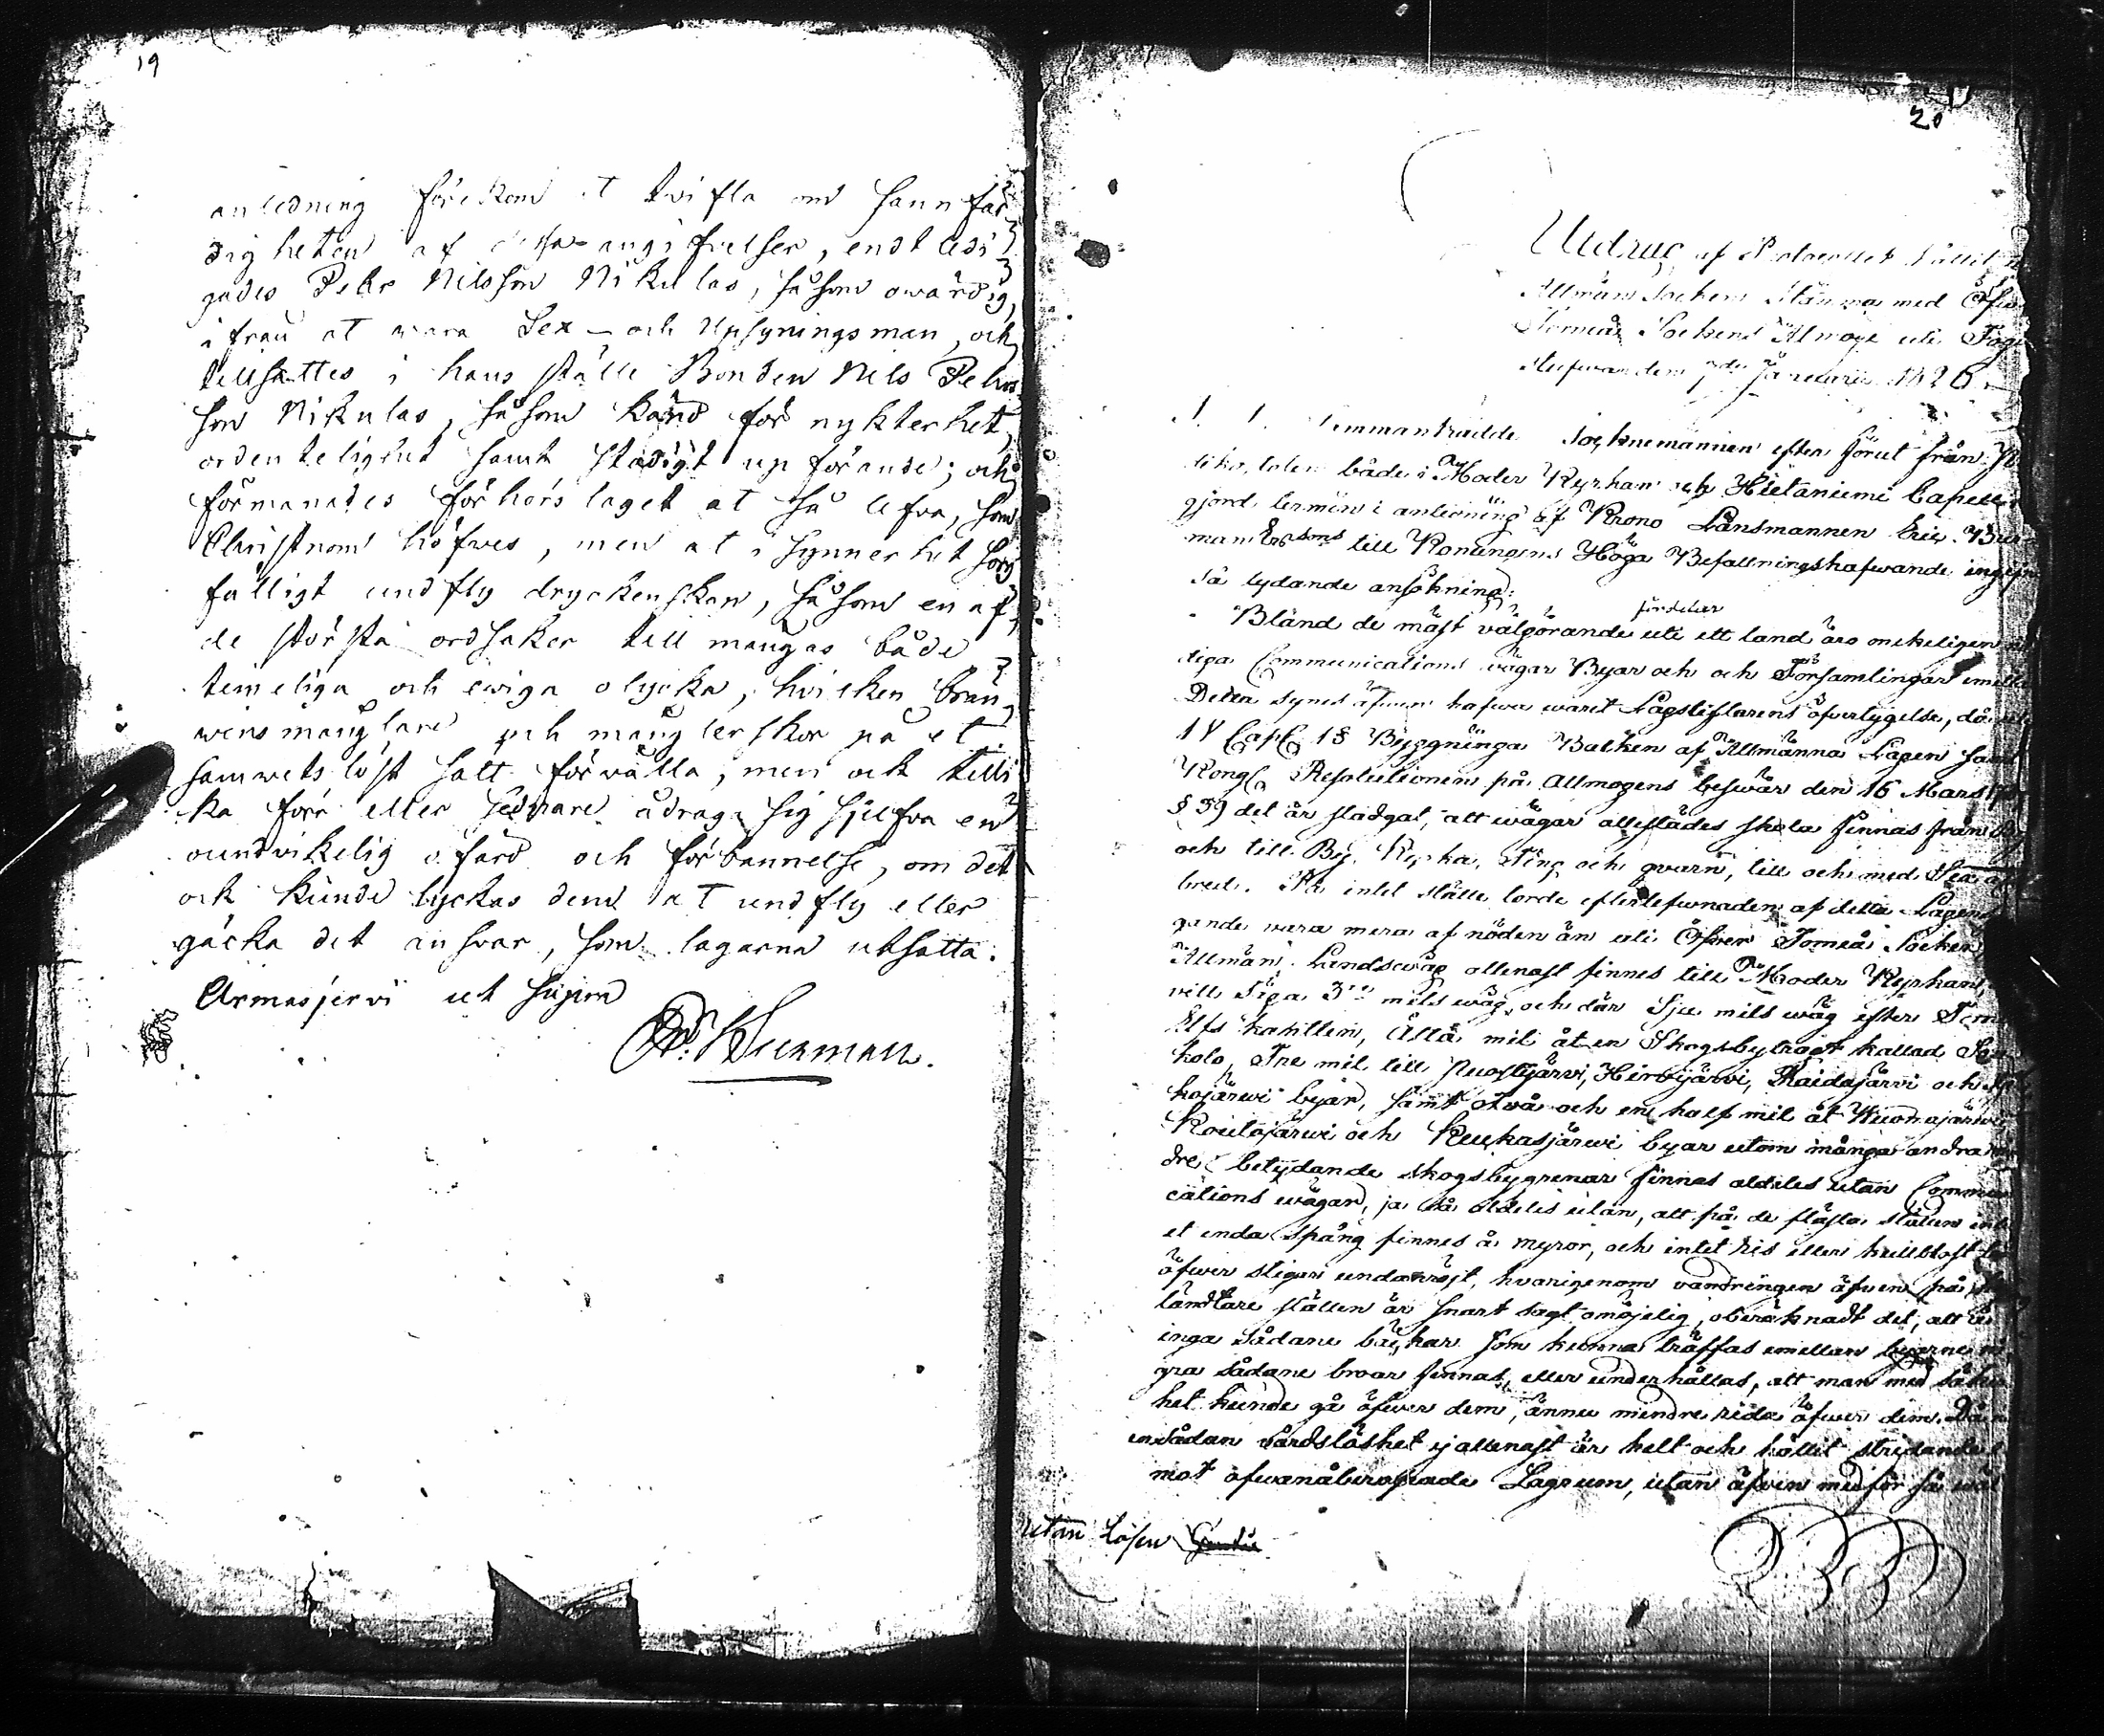 19
anledning förekom at twifla om sannfär
digheten af dessa angifvelser, entledi
gades Pehr Nilsson Nikulas, såsom owärdig,
ifrån at wara Sex- och Upsyningsman, och
tillsattes i hans ställe Bonden Nils Pehrs
son Nikulas, såsom känd för nykterhet,
ordentelighet samt stadigt upförande; och
förmanades förhörslaget at så lefva, som
Christnom höfves, men at i synnerhet sorg
fälligt undfly dryckenskan, såsom en af
de största ordsaker till mångas både
timeliga och ewiga olycka, hvilken brän
winsmånglare och månglerskor på et
samwetslöst sätt förvålla, men ock tilli
ka förr eller sednare ådraga sig sjelfva en
oundvikelig ofärd och förbannelse, om det
ock kunde lyckas dem at undfly eller
gäcka det answar, som lagarna utsatta.
Armasjervi ut supra
20
Utdrag af Protocollet hållit
Allmän Sockne Stämma med Öfwer
Torneå Sockens Almoge uti
den 7de Januarii 1826
S. 1. Sammanträdde Socknemännen efter förut från
både i Moder Kyrkan och Hietaniemi Capell
gjord termin i anledning af Krono Länsmannen Eric
till Konungens Höga Befallningshafwande
så lydande ansökning:
fördelar
Bland de mäst välgörande uti ett land äro onekeligen
diga Communications wägar Byar och och Församlingar emellan
Detta synes äfwen hafwa warit Lagstiftarens öfvertygelse, då
1 § Byggninga Balken af Allmänna Lagen samt
Kongl. Resolutionen på Allmogens beswär den 16 Mars
§ 39 det är stadgat, att wägar allestädes skola finnas från By
och till By, Kyrka, Ting och qvarn, till och med
bred. På intet ställe torde efterlefwnaden af detta Lagens
gande wara mera af nöden än uti Öfwer Torneå Socken,
Allmän Landswäg allenast finnes till Moder Kyrkan,
mils wäg, och där Sju mils wäg efter
Elfs kantillen, Åtta mil åt en Skogsbytrakt kallad
kolo, Tre mil till Puostijärvi, Hirvijärvi, Raidajärvi och
kojärwi byar, samt twå och en half mil åt Wuomajärwi
Koutojärwi och Kuukasjärwi byar utom många andra
dre betydande skogsbygrenar finnas aldeles utan Commu
cations wägar, ja så aldeles utan, att på de flästa ställen
et enda spång finnes å myror, och intet ris eller kullblåst
öfwer stigar undanröjt, hvarigenom wandringen äfwen på
ländtare ställen är snart sagt omöjelig, oberäknadt det, att
inga sådane bäckar som kunna träffas emellan byarne
gra sådane broar finnas, eller underhållas, att man med säker
het kunde gå öfwer dem, ännu mindre rida öfwer dem. Då
en sådan wårdslöshet ej allenast är helt och hållit stridande
mot ofwanåberopade Lagrum, utan äfwen medför så wäl
Utan Lösen